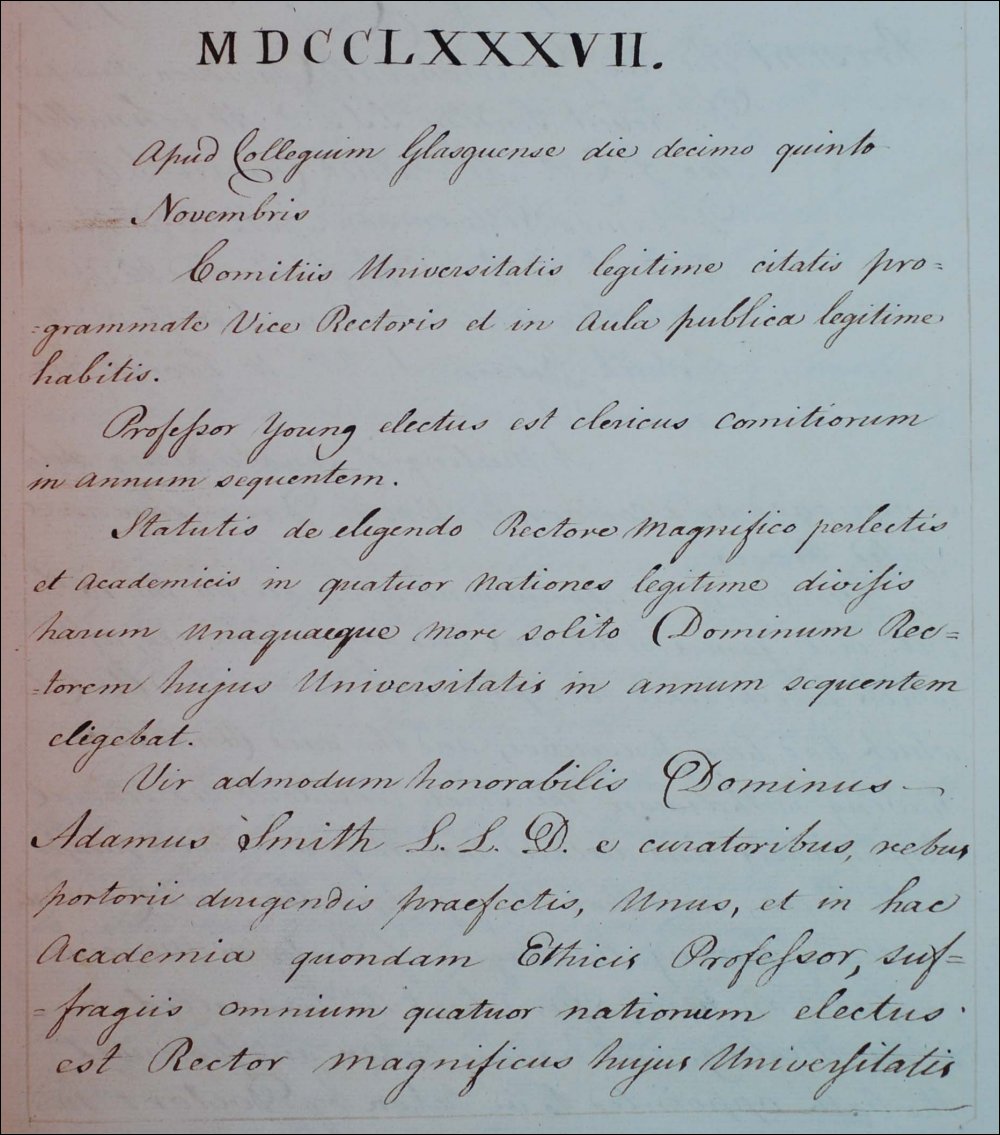 MDCCLXXXVII.
Apud Collegium Glasguense die decimo quinto
Novembris
Comitiis Universitatis legitime citatis pro=
=grammate Vice Rectoris et in Aula publica legitime
habitis.
Profeſsor Young electus est clericus Comitiorum
in annum sequentem.
Statutis de eligendo Rectore Magnifico perlectis
et Academicis in quatuor Nationes legitime diviſis
harum unaquaeque more solito Dominum Rec=
=torem hujus Universitatis in annum sequentem
eligebat.
Vir admodum honorabilis Dominus
Adamus Smith L. L. D. e curatoribus, rebus
portorii dirigendis praefectis, Unus, et in hac
Academia quondam Ethicis Profeſsor, suf=
=fragiis omnium quatuor nationum electus
est Rector Magnificus hujus Univerſitatis